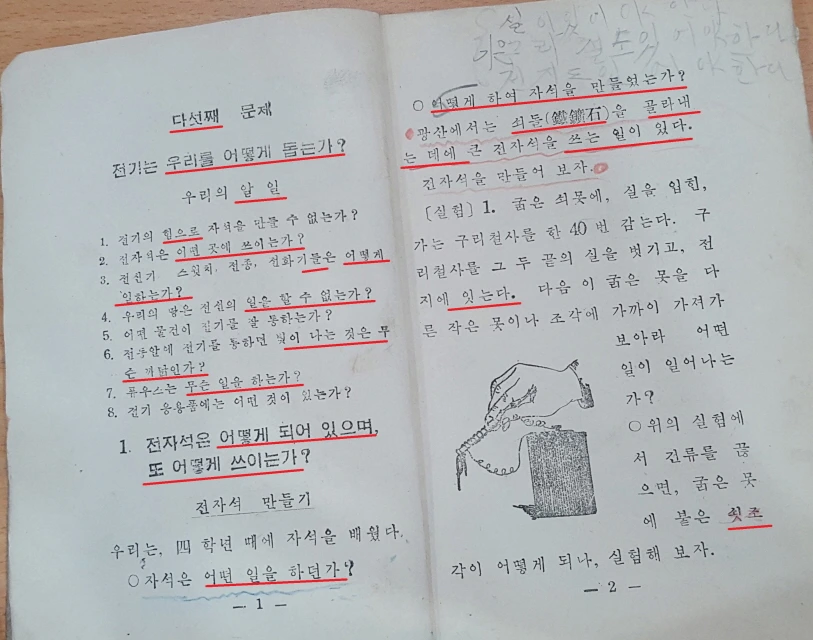 다섯째 문제
전기는 우리를 어떻게 돕는가?
우리의 알 일
1. 전기의 힘으로 자석을 만들 수 없는가?
2. 전자석은 어떤 곳에 쓰이는가?
3. 전신기 스윗치, 전종, 전화기들은 어떻게
일하는가?
4. 우리의 땅은 전선의 일을 할 수 없는가?
5. 어떤 물건이 전기를 잘 통하는가?
6. 전구안에 전기를 통하면 빛이 나는 것은 무
슨 까닭인가?
7. 퓨우스는 무슨 일을 하는가?
8. 전기 응용품에는 어떤 것이 있는가?
1. 전자석은 어떻게 되어 있으며,
또 어떻게 쓰이는가?
전자석 만들기
우리는, 四 학년 때에 자석을 배웠다.
○자석은 어떤 일을 하던가?
— 1 —
○ 어떻게 하여 자석을 만들었는가?
광산에서는 쇠돌(鐵鑛石)을 골라내
는 데에 큰 전자석을 쓰는 일이 있다.
전자석을 만들어 보자.
[실험] 1. 굵은 쇠못에, 실을 입힌,
가는 구리철사를 한 40 번 감는다. 구
리철사를 그 두 끝의 실을 벗기고, 전
지에 잇는다. 다음 이 굵은 못을 다
른 작은 못이나 조각에 가까이 가져가
보아라 어떤
일이 일어나는
가?
○위의 실험에
서 전류를 끊
으면, 굵은 못
에 붙은 쇳조
각이 어떻게 되나, 실험해 보자.
— 2 —